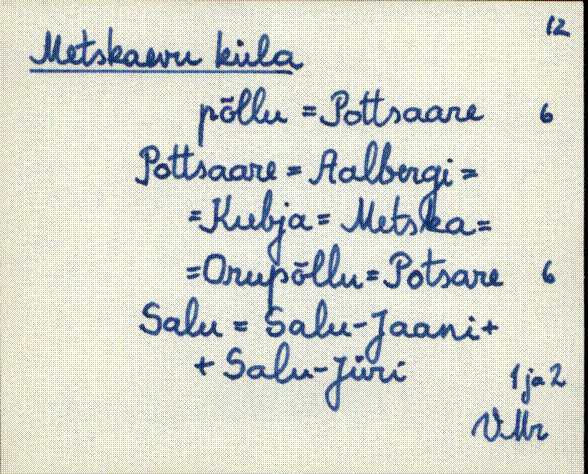 12
Metskaevu küla
põllu = Pottsaare 6
Pottsaare = Aalbergi =
= Kubja = Metska =
= Orupõllu = Potsare 6
Salu = Salu-Jaani +
+ Salu-Jüri
1 ja 2
VMr